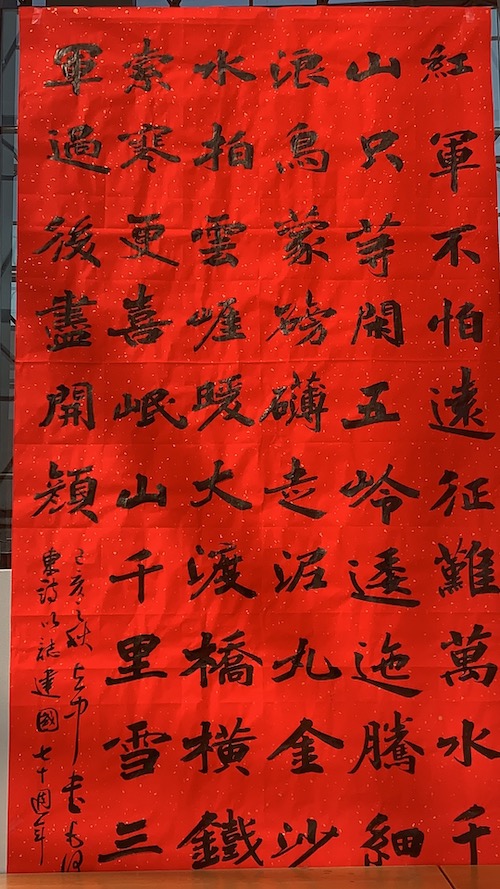 紅軍不怕遠征難萬水千
山只等閑五岭逶迤騰細
浪烏蒙磅礴走泥丸金沙
水拍雲崕暖大渡橋橫鐵
索寒更喜岷山千里雪三
軍過後盡開顏
己亥之秋书毛泽
東詩以誌建國七十週年